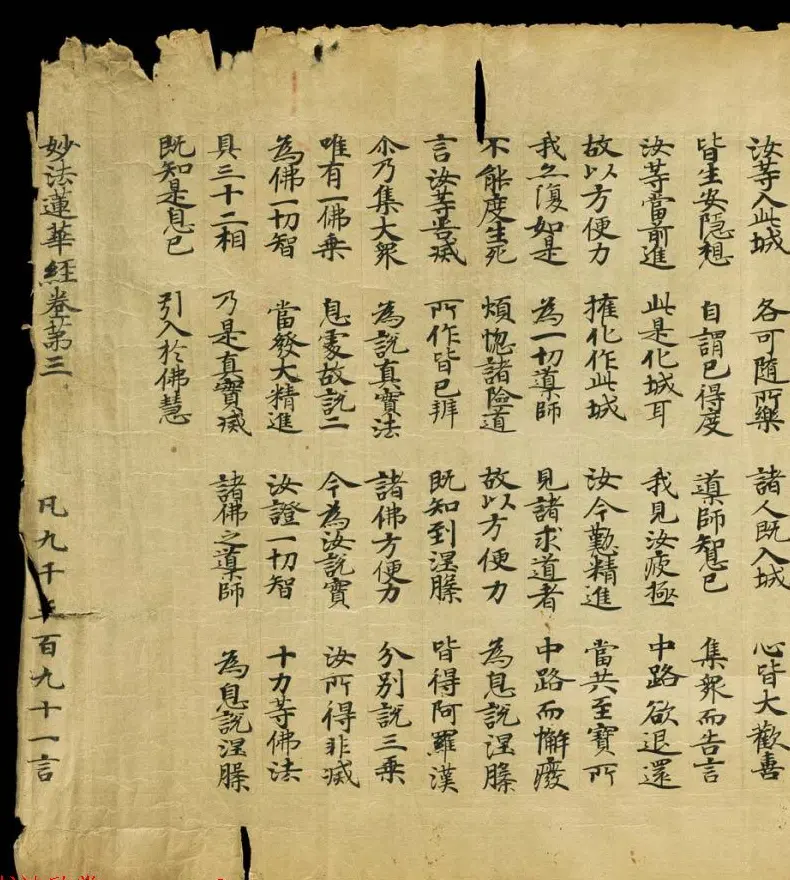 汝等入此城 各可隨所樂 諸人既入城 心皆大歡喜
皆生安隱想 自謂已得度 導師知息已 集眾而告言
汝等當前進 此是化城耳 我見汝疲極 中路欲退還
故以方便力 權化作此城 汝今勤精進 當共至寶所
我亦復如是 為一切導師 見諸求道者 中路而懈廢
不能度生死 煩惱諸險道 故以方便力 為息說涅槃
言汝等苦滅 所作皆已辦 既知到涅槃 皆得阿羅漢
尒乃集大眾 為說真實法 諸佛方便力 分別說三乘
唯有一佛乘 息處故說二 今為汝說實 汝所得非滅
為佛一切智 當發大精進 汝證一切智 十力等佛法
具三十二相 乃是真實滅 諸佛之導師 為息說涅槃
既知是息已 引入於佛慧
妙法蓮華經卷第三 凡九千百九十一言